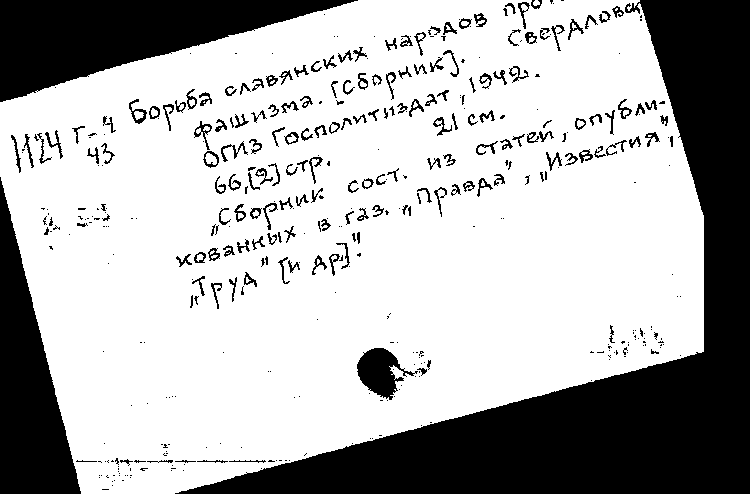 Борьба славянских народов
фашизма. [Сборник]. Свердловск
ОГИЗ Госполитиздат, 1942.
66,[2] стр. 21 см.
„Сборник сост. из статей, опубли-
кованных в газ. „Правда", „Известия",
„Труд" [и др.]".
Г-4
43